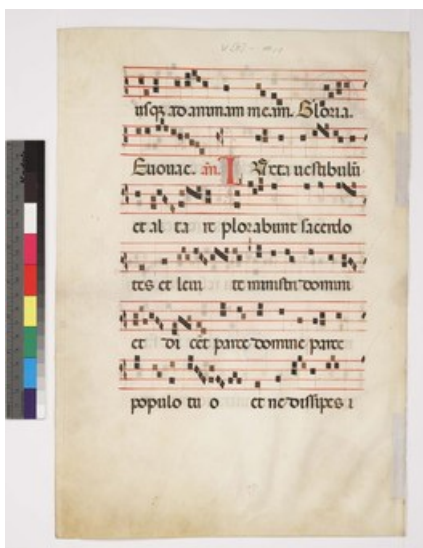 usq; ad animam meam. Gloria.
Euouae. añ. Iuxta uestibulũ
et al ta re plorabunt sacerdo
tes et leui te ministri domini
et di cẽt parce domine parce
populo tu o et ne dissipes i